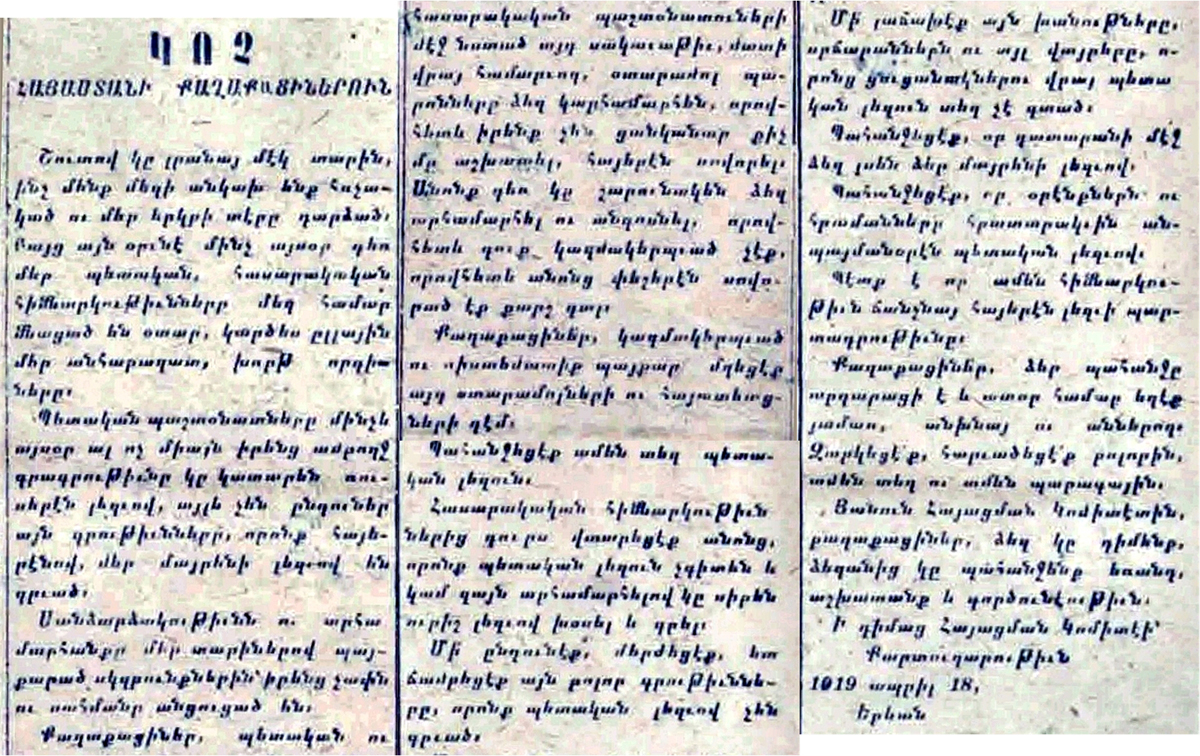 ԿՈՉ
ՀԱՅԱՍՏԱՆԻ ՔԱՂԱՔԱՑԻՆԵՐՈՒՆ
Շուտով կը լրանայ մէկ տարին,
ինչ մենք մեզի անկախ ենք հռչա-
կած ու մեր երկրի տէրը դարձած։
Բայց այն օրւնէ մինչ այսօր դեռ
մեր պետական, հասարակական
հիմնարկութիւնները մեզ համար
մնացած են օտար, կարծես ըլլային
մեր անհարազատ, խորթ որդի—
ները։
Պետական պաշտօնատները մինչև
այսօր ալ ոչ միայն իրենց ամբողջ
գրագրութիւնը կը կատարեն ռու-
սերէն լեզւով, այլև չեն ընդուներ
այն գրութիւնները, որոնք հայե-
րէնով, մեր մայրենի լեզւով են
գրւած։
Սանձարձակութիւնն ու արհա
մարհանքը մեր տարիներով պայ-
քարած սկզբունքներին՝ իրենց չափն
ու սահմանը անցուցած են։
Քաղաքացիներ, պետական ու
հասարակական պաշտօնատուների
մէջ նստած այդ սակաւաթիւ, մատի
վրայ համարւող, օտարամոլ պա-
րոնները ձեզ կարհամարհեն, որով-
հետև իրենք չեն ցանկանար քիչ
մը աշխատել, հայերէն սովորել։
Անոնք դեռ կը շարունակեն ձեզ
արհամարհել ու անգոսնել, որով-
հետև դուք կազմակերպւած չէք,
որովհետև անոնց փէշերէն սովո-
րած էք քարշ գալ։
Քաղաքացիներ, կազմակերպւած
ու սիստեմատիք պայքար մղեցէք
այդ օտարամոլների ու հայատեաց-
ների դէմ։
Պահանջեցէք ամեն տեղ պետա-
կան լեզուն։
Հասարակական հիմնարկութիւն
ներից դուրս վտարեցէք անոնց,
որոնք պետական լեզուն չգիտեն և
կամ զայն արհամարհելով կը սիրեն
ուրիշ լեզւով խօսել և գրել։
Մի ընդունէք, մերժեցէք, ետ
ճամբեցէք այն բոլոր գրութիւննե-
րը, որոնք պետական լեզւով չեն
գրւած։
Մի յաճախէք այն խանութները,
սրճարաններն ու այլ վայրերը, ո-
րոնց ցուցանակներու վրայ պետա
կան լեզուն տեղ չէ գտած։
Պահանջեցէք, որ դատարանի մէջ
ձեզ լսեն ձեր մայրենի լեզւով,
Պահանջեցէք, որ օրէնքներն ու
հրամանները հրատարակւին ան-
պայմանօրէն պետական լեզւով։
Պէտք է որ ամեն հիմնարկու-
թիւն ճանչնայ հայերէն լեզւի պար-
տադրութիւնը։
Քաղաքացիներ, ձեր պահանջը
արդարացի է և ատոր համար եղէք
յամառ, անխնայ ու աններող։
Զարկեցէ՛ք, հարւածեցէ՛ք բոլորին,
ամեն տեղ ու ամեն պարագային։
Յանուն Հայացման Կոմիտէտին,
քաղաքացիներ, ձեզ կը դիմենք,
ձեզանից կը պահանջենք եռանդ,
աշխատանք և գործունէութիւն։
Ի դիմաց Հայացման Կոմիտէի՝
Քարտուղարութիւն
1919 ապրիլ 18,
Երևան